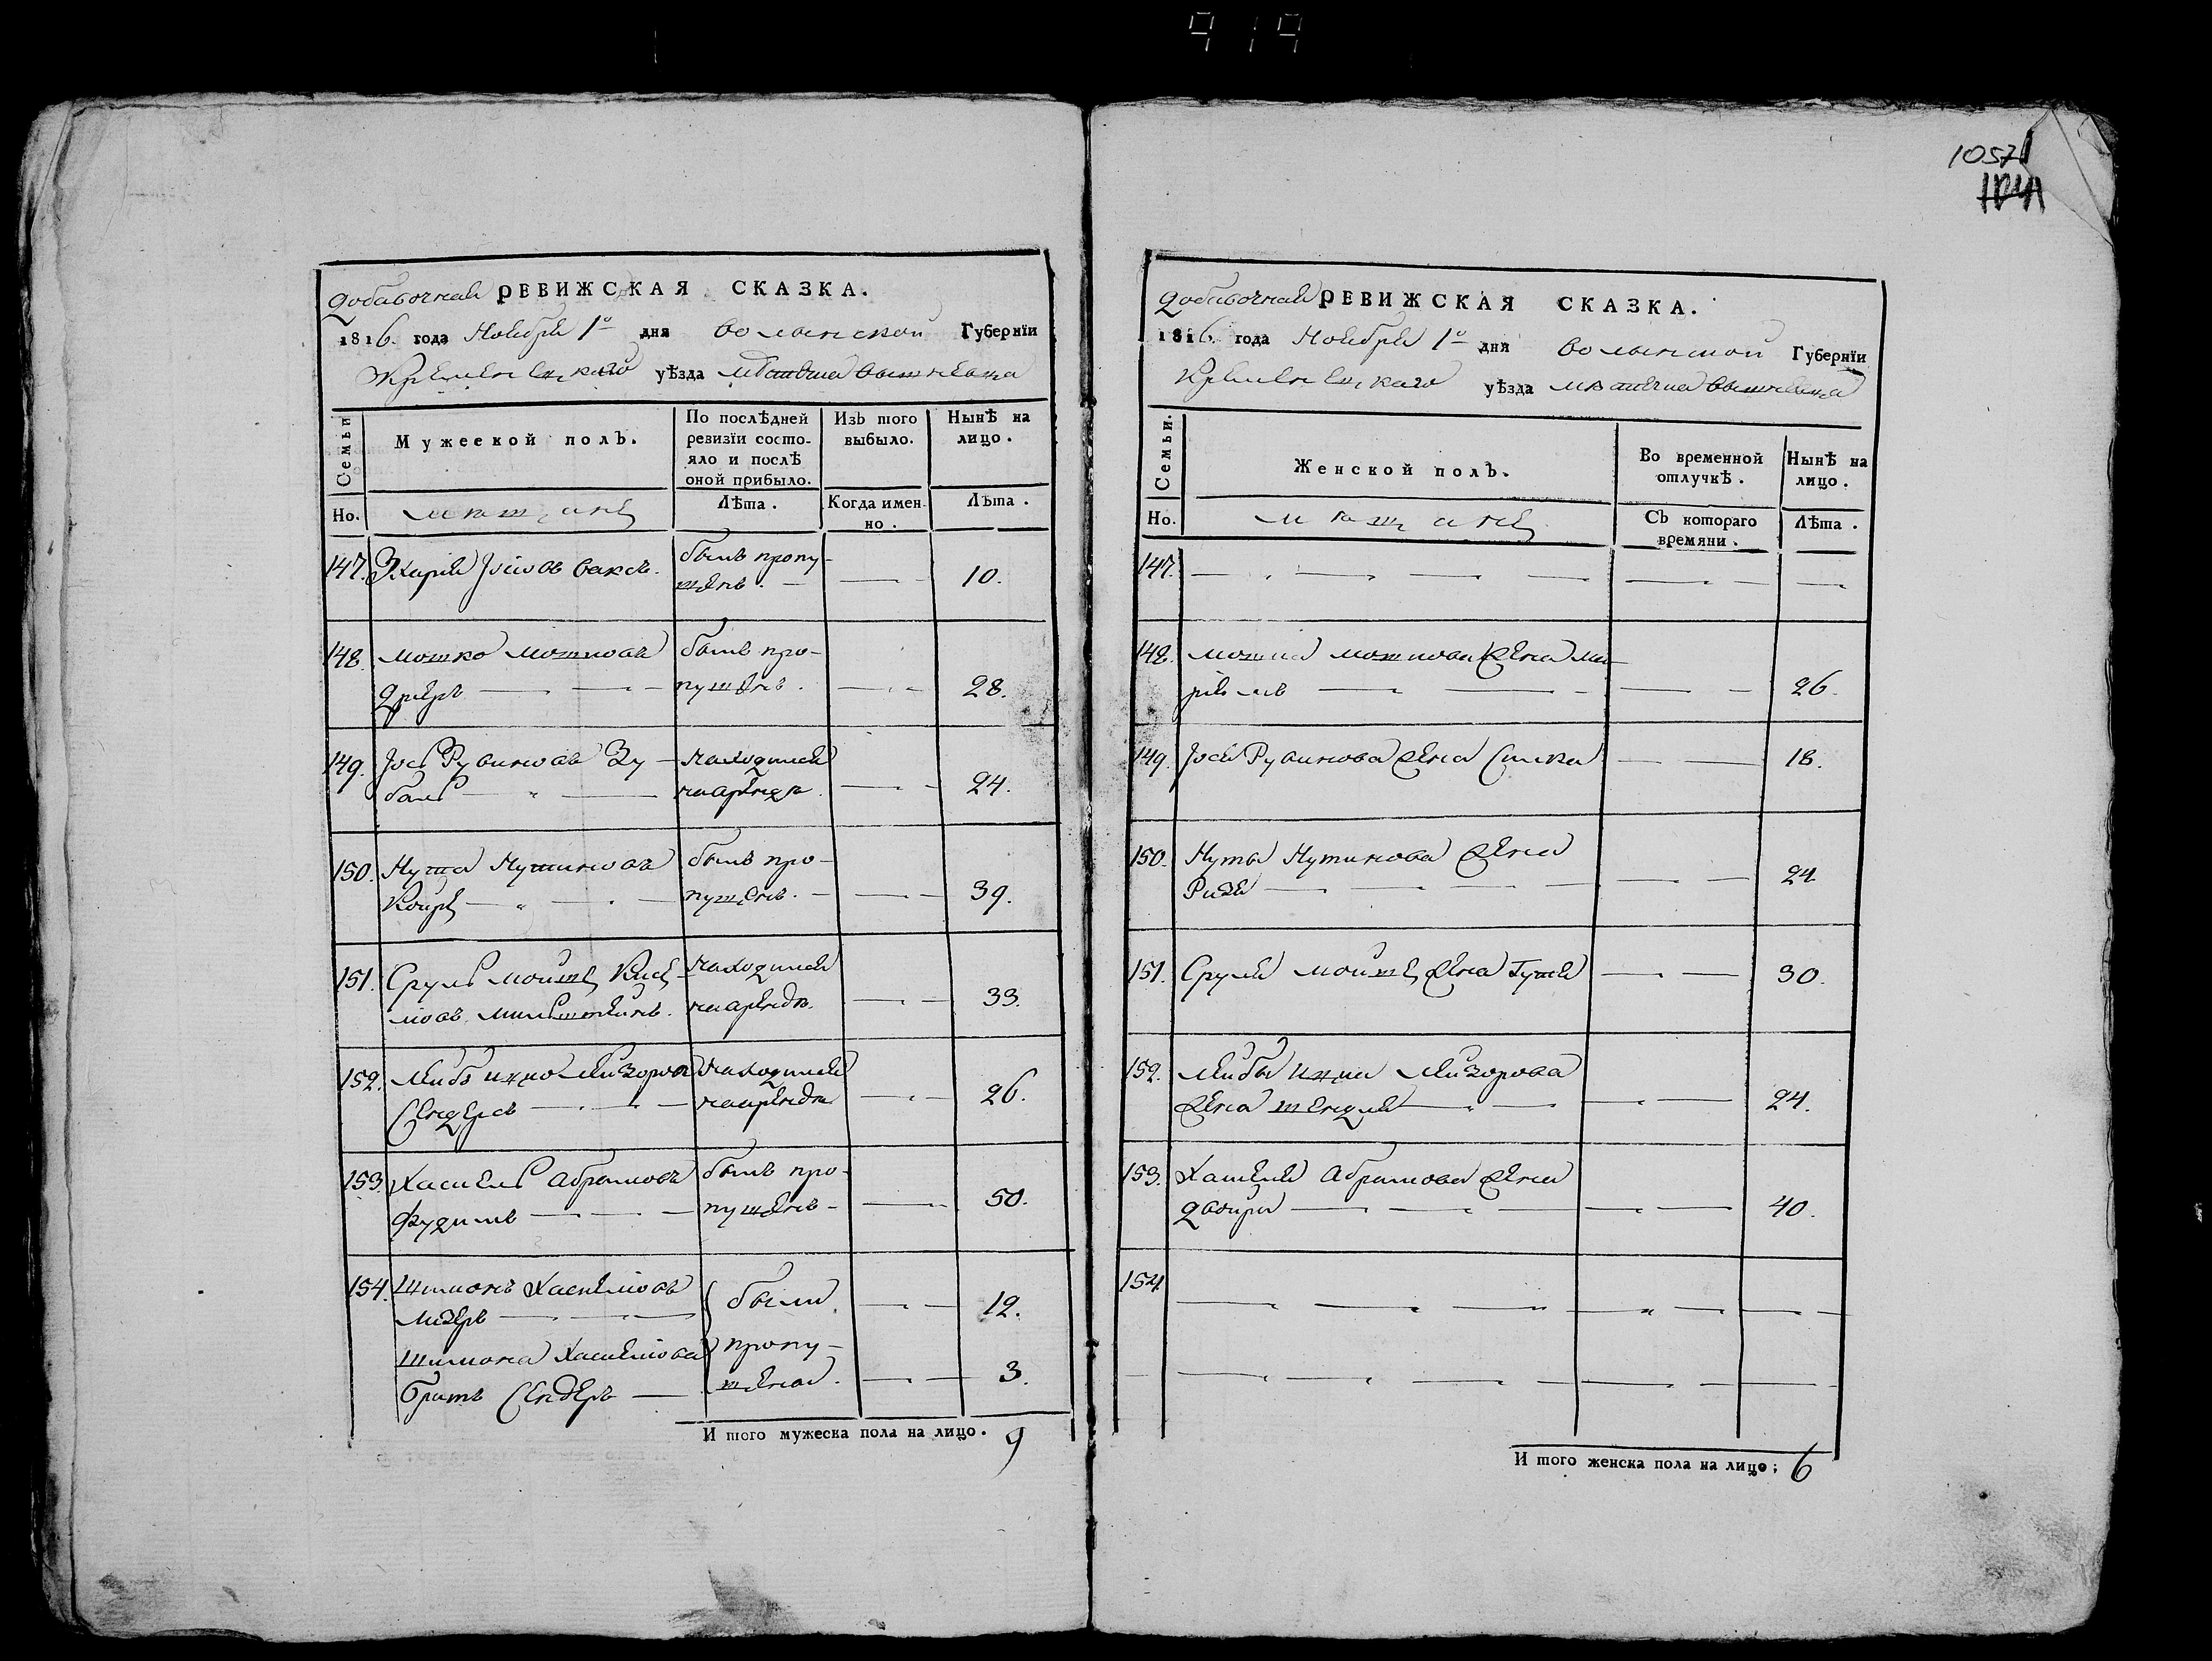 1057
добавочная РЕВИЖСКАЯ СКАЗКА.
1816. года Ноября 1го дня волынской Губернїи
Кременецкаго уѣзда мѣстечка вышневца
Семьи
Мужеской полъ.
По послѣдней
ревизїи состо-
яло и послѣ
оной прибыло.
Изъ того
выбыло.
Нынѣ на
лицо.
Но.
мѣщане
Лѣта.
Когда имен-
но.
Лѣта.
147. Хария Јосiовъ Саксъ. былъ пропу-
щенъ. 10.
148. мошко мошковъ былъ про-
дреръ пущенъ. 28.
149. Јось Рувиновъ Зу- находился
баль наарендѣ. 24.
150. Нута Нутиновъ былъ про-
Коирц пущенъ. 39.
151. Сруль мойше Кисе- находился
лiовъ мильштейнъ. наарендѣ. 33.
152. Лейбъ ицко Лейзоровъ находился
Сендерсъ наарендѣ 26.
153. Хаскель абрамовъ былъ про-
Фудимъ пущенъ 50.
154. Шимонъ Хаскелiовъ были 12.
Лизеръ
Шимона Хаскелiова пропу-
братъ Сендеръ щены. 3.
И того мужеска пола на лицо. 9
добавочная РЕВИЖСКАЯ СКАЗКА.
1816. года Ноября 1го дня волынской Губернїи
Кременецкаго уѣзда мѣстечка вышневца
Семьи.
Женской полъ.
Во временной
отлучкѣ.
Нынѣ на
лицо.
Но.
мѣщане
Съ котораго
времяни.
Лѣта.
147.
148. мошка мошкова жена ма-
рiемъ 26.
149. Јося Рувинова жена Сишка 18.
150. Нуты Нутинова жена
Ризя 24
151. Сруля мойше жена Гутя 30.
152. Лейбы ицка Лейзорова
жена шендля 24.
153. Хаскеля абрамова жена
двойра 40.
154
И того женска пола на лицо; 6